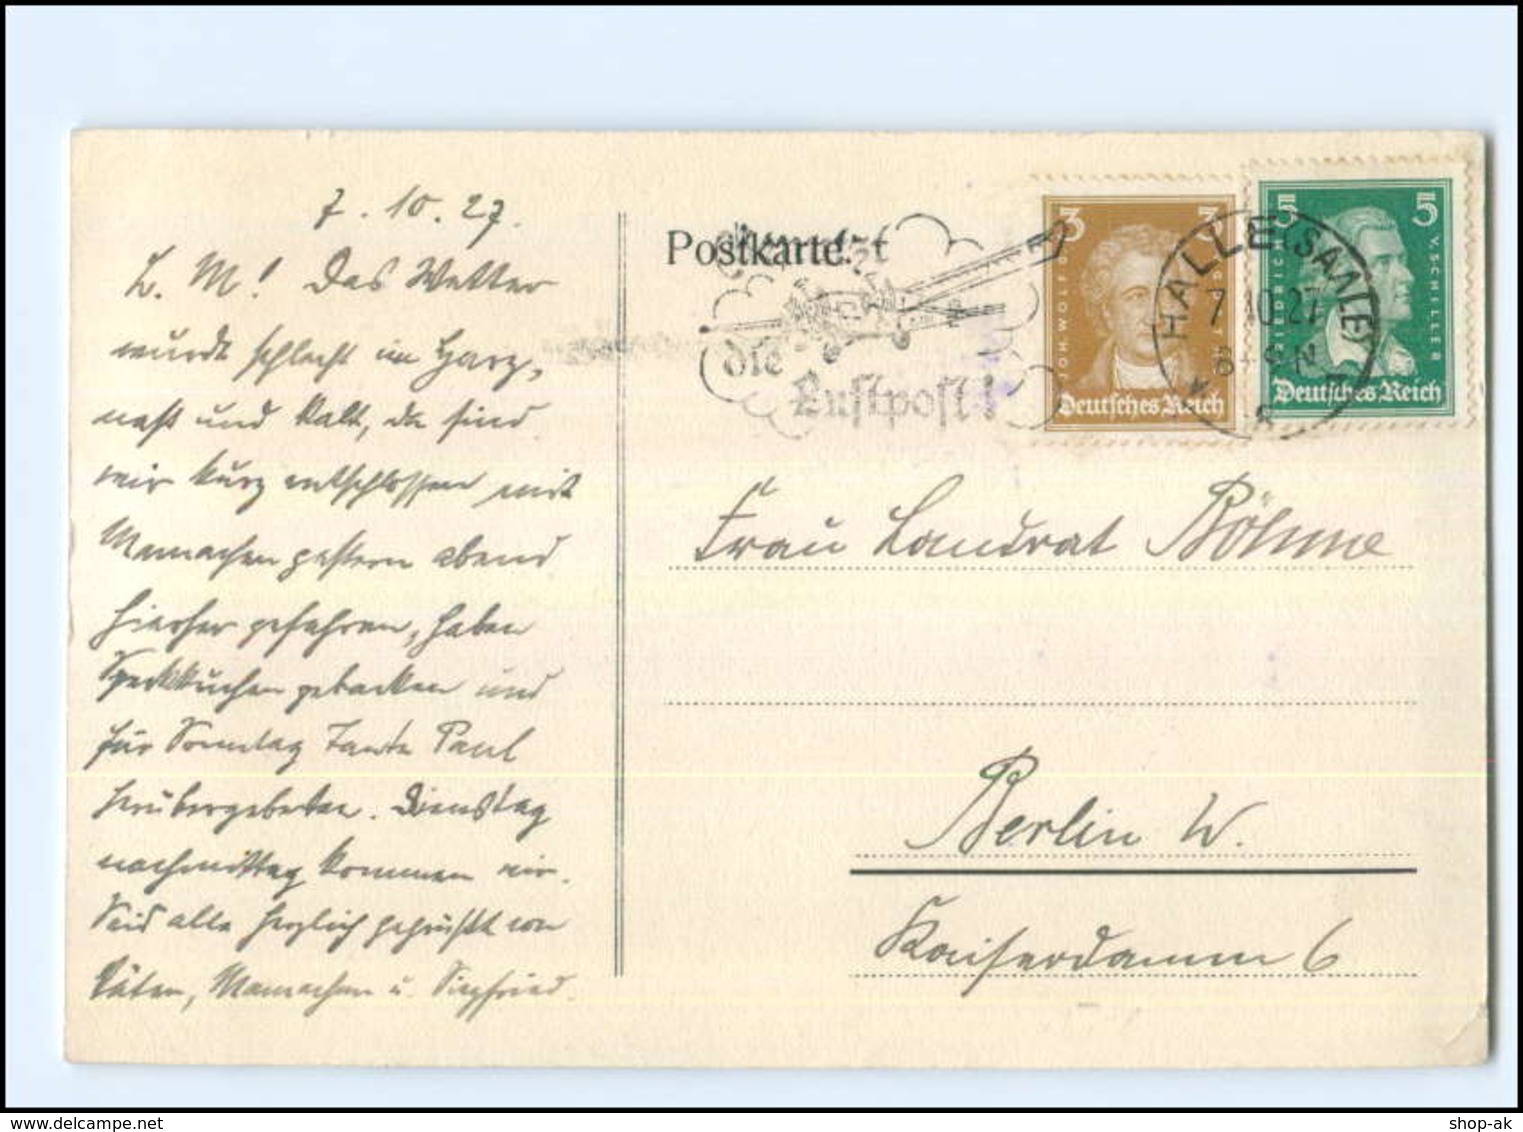 7.10.27.
L. M! Das Wetter
wurde schlecht im Harz,
naß und kalt, da sind
wir kurz entschlossen mit
Mamachen gestern abend
hierher gefahren, haben
Speckkuchen gebacken und
für Sonntag Tante Paul
herübergebeten. Dienstag
nachmittag kommen wir.
Seid alle herzlich gegrüßt von
Käten, Mamachen u. Siegfried.
Postkarte
die
Luftpost!
3 3
Deutsches Reich
5 5
FRIEDRICH V. SCHILLER
Deutsches Reich
HALLE (SAALE)
7.10.27
Frau Landrat Böhme
Berlin W.
Kaiserdamm 6
shop-ak